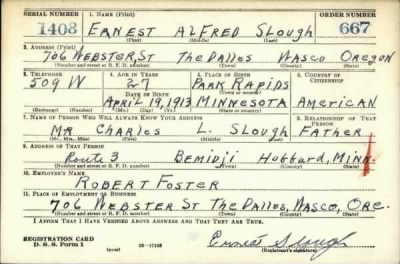 SERIAL NUMBER 1. NAME (Print) ORDER NUMBER
1403 ERNEST ALFRED SLOUGH 667
(First) (Middle) (Last)
2. ADDRESS (Print)
706 WEBSTER, ST THE DALLES WASCO OREGON
(Number and street or R. F. D. number) (Town) (County) (State)
3. TELEPHONE 4. AGE IN YEARS 5. PLACE OF BIRTH 6. COUNTRY OF CITIZENSHIP
509 W 27 PARK RAPIDS
DATE OF BIRTH (Town)
APRIL 19, 1913 MINNESOTA AMERICAN
(Exchange) (Number) (Mo.) (Day) (Yr.) (State or country)
7. NAME OF PERSON WHO WILL ALWAYS KNOW YOUR ADDRESS 8. RELATIONSHIP OF THAT PERSON
MR CHARLES L. SLOUGH FATHER
(Mr., Mrs., Miss) (First) (Middle) (Last)
9. ADDRESS OF THAT PERSON
Route 3 BEMIDJI Hobbard, MINN.
(Number and street or R. F. D. number) (Town) (County) (State)
10. EMPLOYER'S NAME
ROBERT FOSTER
11. PLACE OF EMPLOYMENT OR BUSINESS
706 WEBSTER ST THE DALLES, WASCO, ORE.
(Number and street or R. F. D. number) (Town) (County) (State)
I AFFIRM THAT I HAVE VERIFIED ABOVE ANSWERS AND THAT THEY ARE TRUE.
REGISTRATION CARD
D. S. S. Form 1 (over) Ernest Slough
(Registrant's signature)